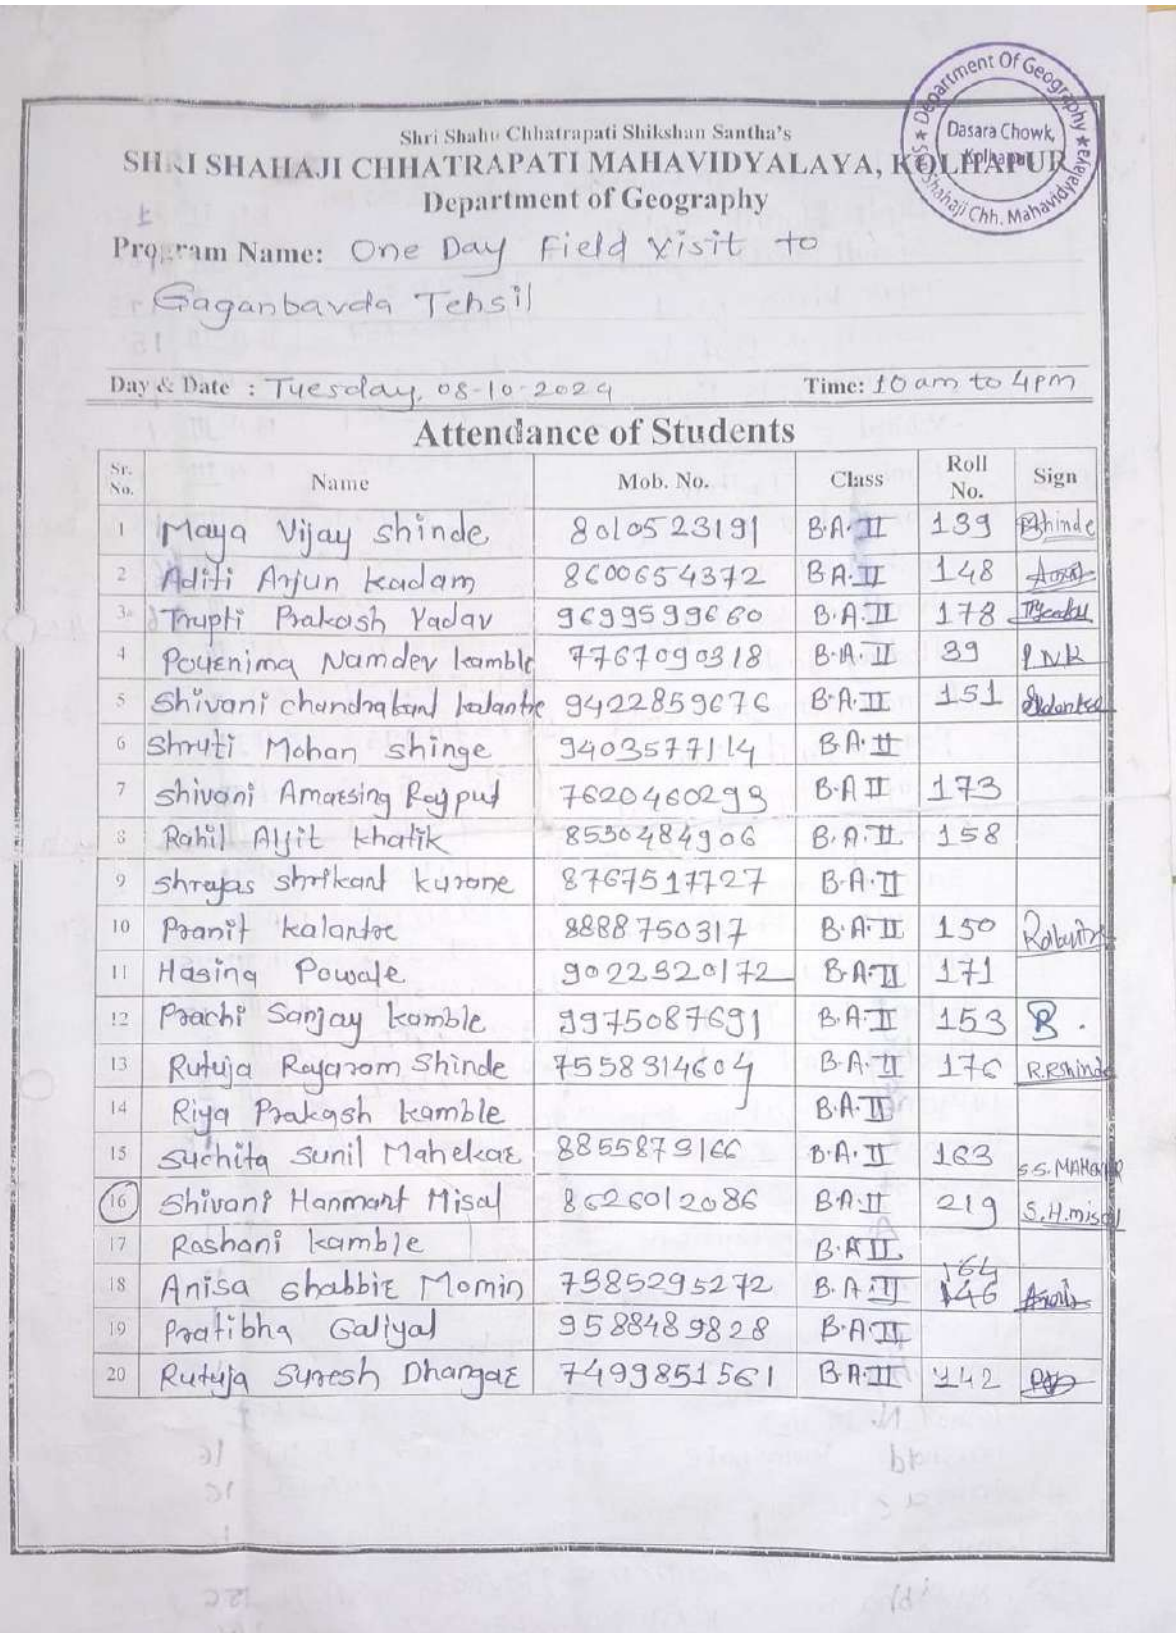 Department Of Geography
Shri Shahaji Chh. Mahavidyalaya
Dasara Chowk,
Kolhapur
Shri Shahu Chhatrapati Shikshan Santha's
SHRI SHAHAJI CHHATRAPATI MAHAVIDYALAYA, KOLHAPUR
Department of Geography
Program Name: One Day Field Visit to
Gaganbavda Tehsil
Day & Date : Tuesday, 08-10-2024 Time: 10 am to 4 pm
Attendance of Students
Sr. No. Name Mob. No. Class Roll No. Sign
1 Maya Vijay Shinde 8010523191 B.A.II 139 Shinde
2 Aditi Arjun Kadam 8600654372 B A.II 148
3 Trupti Prakash Yadav 9699599660 B.A.II 178
4 Pourenima Namdev kamble 7767090318 B.A.II 39 PNK
5 Shivani chandrakant kalantre 9422859676 B.A.II 151
6 Shruti Mohan shinge 9403577114 B.A.II
7 Shivani Amarsing Rajput 7620460293 B.A II 173
8 Rahil Aljit khatik 8530484906 B.A.II 158
9 shrajas shrikant kurone 8767517727 B.A.II
10 Pranit kalantre 8888750317 B.A.II 150
11 Hasina Powale 9022920172 B.A.II 171
12 Prachi Sanjay kamble 9975087691 B.A.II 153
13 Rutuja Rajaram Shinde 7558314604 B.A.II 176 R.RShinde
14 Riya Prakash kamble B.A.II
15 Suchita Sunil Mahekar 8855879166 B.A.II 163 S.S. MAHEKAR
16 Shivani Hanmant Misal 8626012086 B A.II 219 S.H.misal
17 Roshani kamble B.A II
18 Anisa shabbir Momin 7385295272 B.A.II 164 146
19 Pratibha Galiyal 9588489828 B.A.II
20 Rutuja Suresh Dhangar 7499851561 B.A.II 142